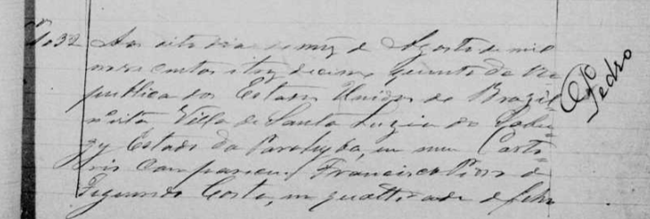 No 32 Aos oito dias do mez de Agosto de mil
nove centos e tres decimo quinto da Re
publica dos Estados Unidos do Brazil
n'esta Villa de Santa Luzia do Sabu
gy Estado da Parahyba, em meu Carto
rio compareceu Francisco
Segundo Costa, em
Pedro